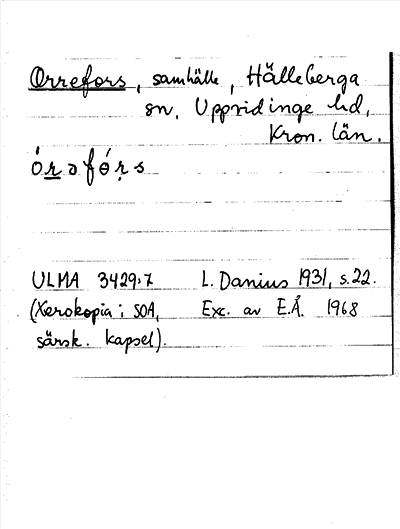 Orrefors, samhälle, Hälleberga
sn, Uppvidinge hd,
Kron. län.
ULMA 3429:7 L. Danius 1931, s. 22.
(Xerokopia i SOA, Exc. av E.Å. 1968
särsk. kapsel).